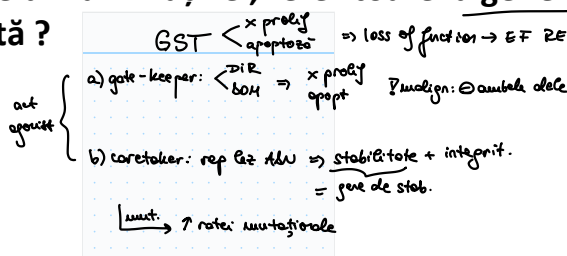 tă ?
GST < x prolif
apoptoză => loss of function → EF RE
a) gate-keeper: < DIR
DOM => x prolif
apopt
! malign: ⊖ ambele
act
agonist
b) caretaker: rep lez ADN => stabilitate + integrit.
= gene de stab.
mut. → ↑ ratei mutaționale